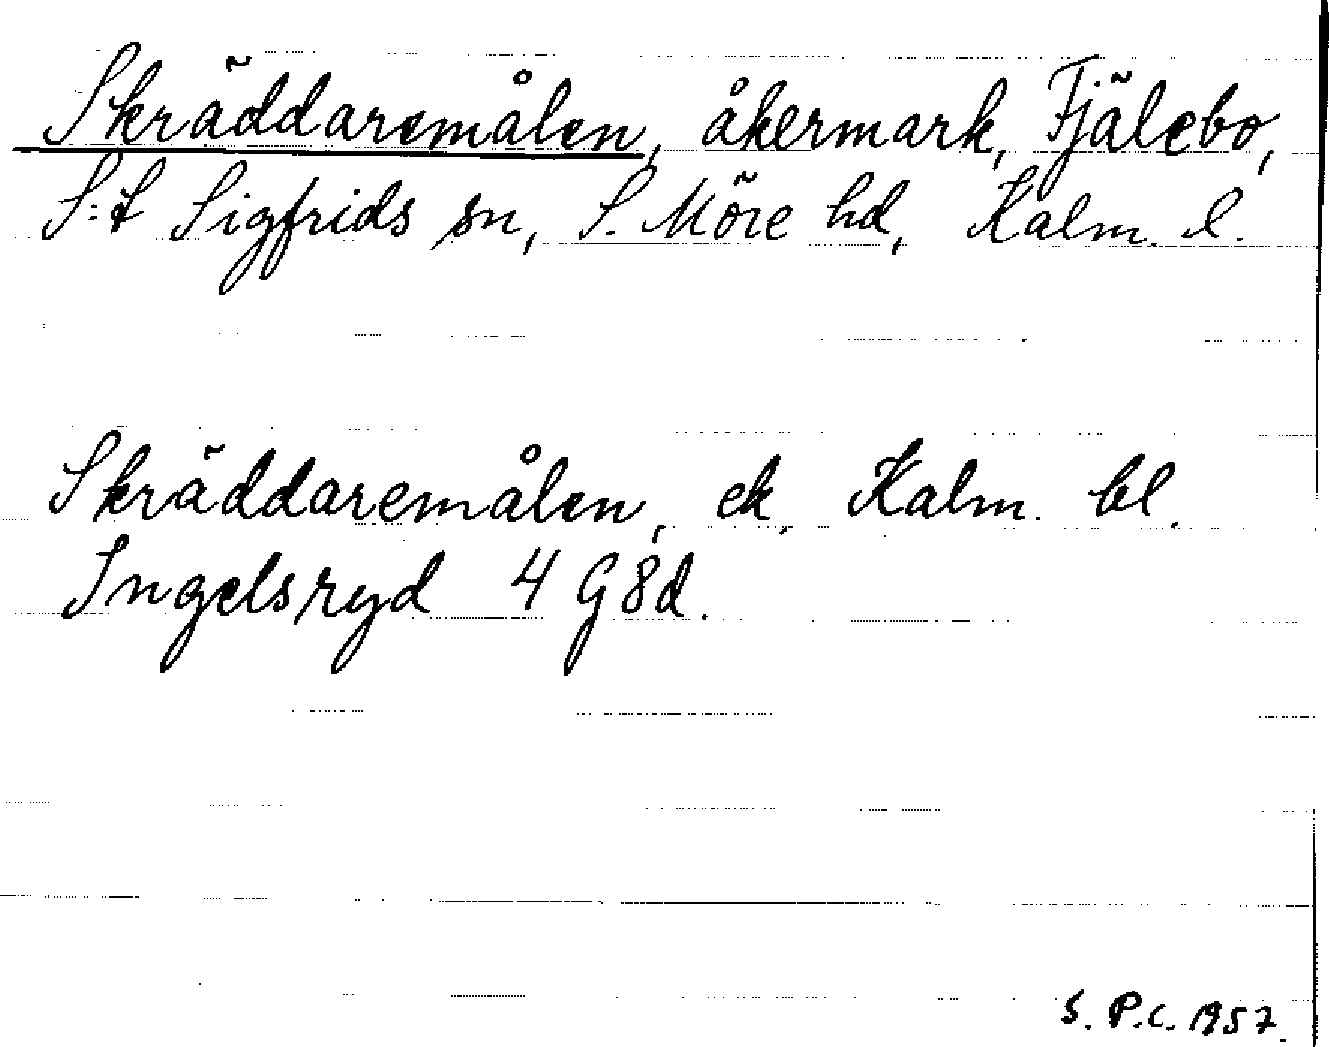 Skräddaremålen, åkermark, Fjälebo,
S:t Sigfrids sn, S. Möre hd, Kalm. l.
Skräddaremålen, ek. Kalm. bl.
Ingelsryd 4 G 8d.
S. P.C. 1957.